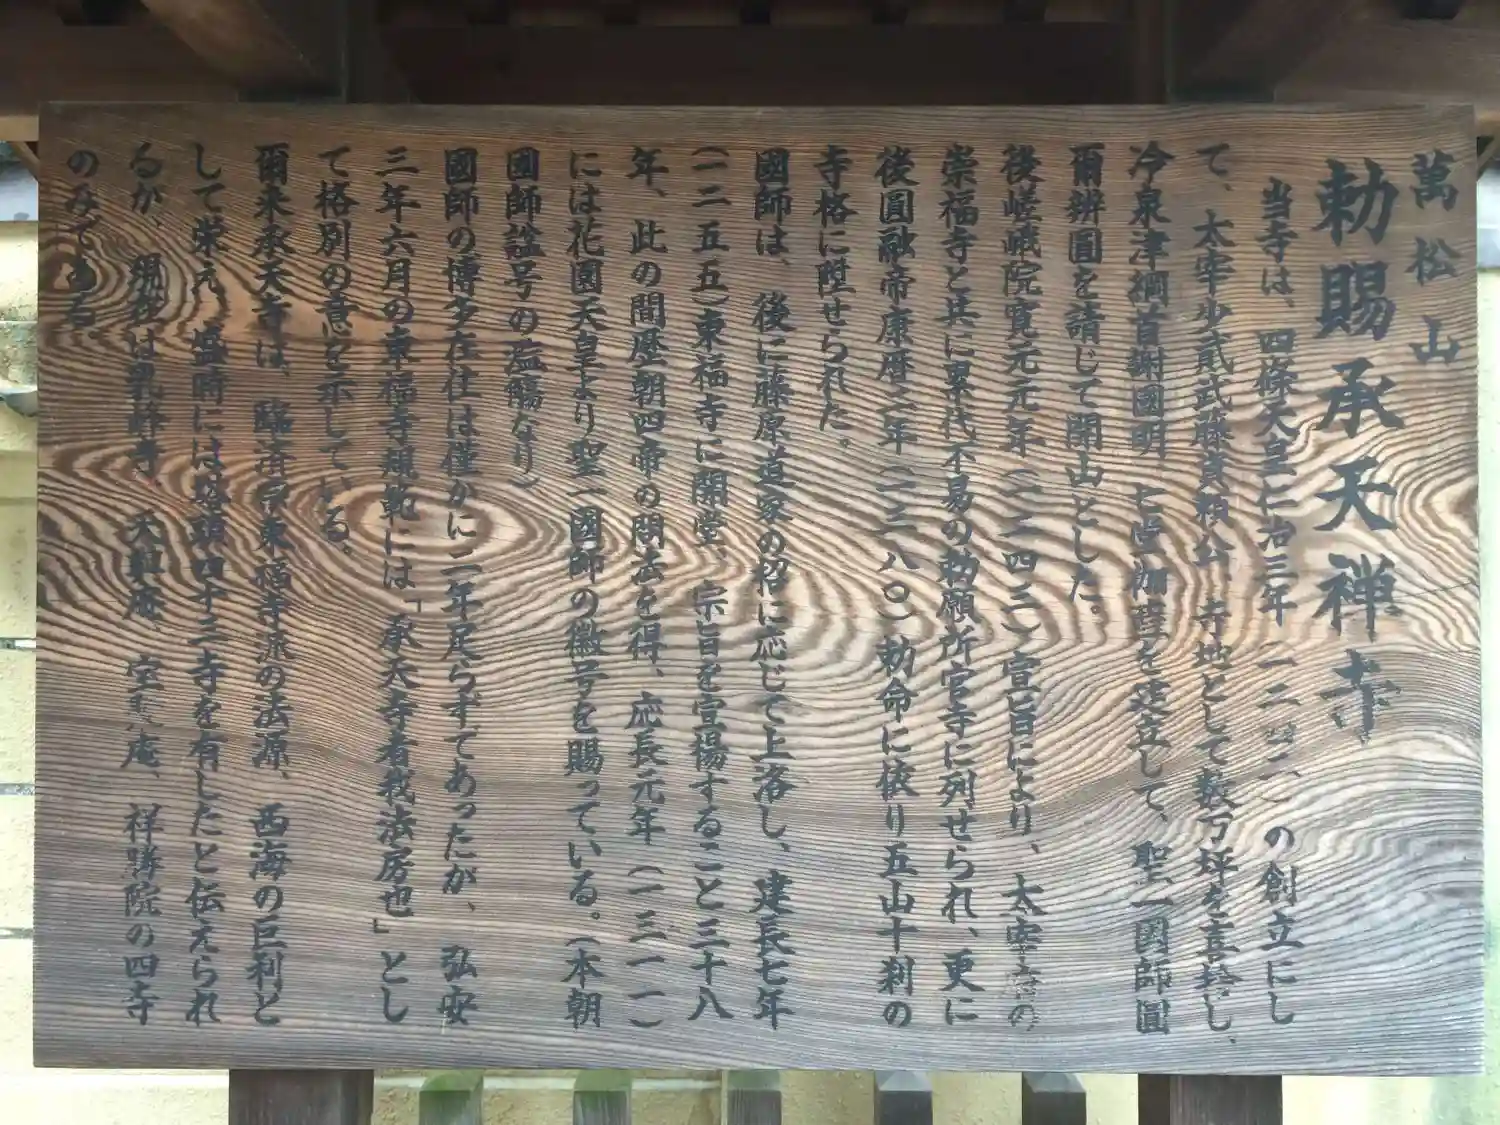 萬松山
勅賜承天禅寺
当寺は、四條天皇仁治三年(一二四二)の創立にし
て、太宰少貳武藤資頼公、寺地として数万坪を喜捨し、
冷泉津綱首謝國明 七堂伽藍を建立して、聖一國師圓
爾辨圓を請じて開山とした。
後嵯峨院寛元元年(一二四三)宣旨により、太宰府の
崇福寺と共に累代不易の勅願所官寺に列せられ、更に
後圓融帝康暦二年(一三八〇)勅命に依り五山十刹の
寺格に陞せられた。
國師は、後に藤原道家の招に応じて上洛し、建長七年
(一二五五)東福寺に開堂、宗旨を宣揚すること三十八
年、此の間歴朝四帝の問法を得、応長元年(一三一一)
には花園天皇より聖一國師の徽号を賜っている。(本朝
國師諡号の濫觴なり)
國師の博多在住は僅かに二年足らずであったが、弘安
三年六月の東福寺規範には「承天寺者我法房也」とし
て格別の意を示している。
爾来承天寺は、臨済宗東福寺派の法源、西海の巨利と
して栄え、盛時には塔頭四十三寺を有したと伝えられ
るが、現在は乳峰寺、天與庵、宝聚庵、祥勝院の四寺
のみである